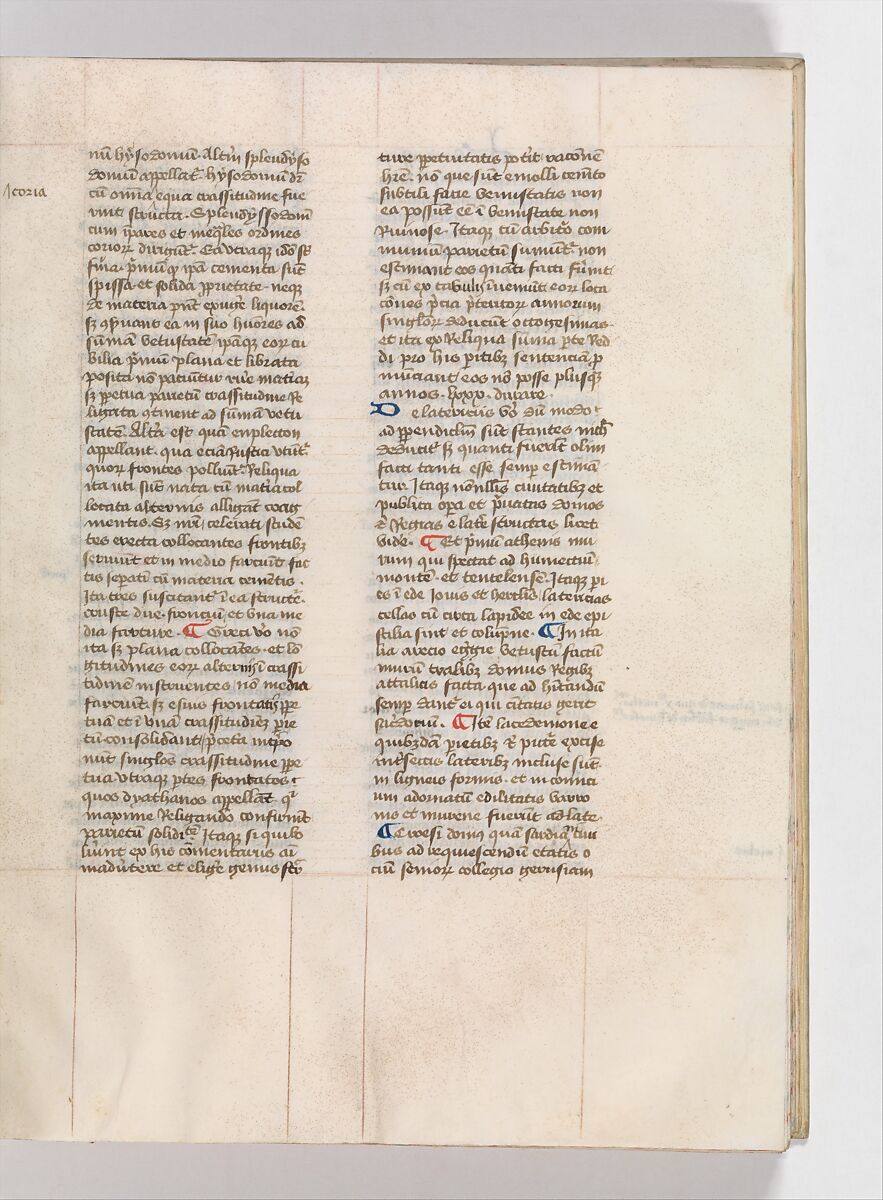 Icoria
mū hysodomū. Altm̄ splendyso
domū appellat̄. hysodomū dr̄
cū om̄ia equa crassitudine fue
rint structa. Splendyssodom
cum īpares et ineq̄les ordines
coriorꝝ dirigūt᷑. Ea vtraqꝫ idō sūt
fir̄a. p̄mūqꝫ ip̄a cementa sūt
spissa et solida p̄prietate neqꝫ
de materia pn̄t exuḡe liquorē
sꝫ ꝯseruant ea in suo humores ad
sūmam vetustatē ip̄aqꝫ eorꝝ cu
bilia p̄mum plana et librata
posita nō paciūtur ruere matiaꝫ
sꝫ ꝑpetua parietū crassitudine Re
ligata ꝯtinent ad sūmā vetu
statē. Altera est quā enplecton
appellant. qua eciā Rustici vtūt᷑
quorꝝ frontes poliunt᷑. Reliqua
ita uti sūt nata cū mat̄ia col
locata alternis alligāt coag
mentis. Sꝫ nr̄i celerati stude
tes erecta collocantes frontibꝫ
seruiunt et in medio farciūt frac
tis sep̄ati cū materia cemētis.
Ita tres suscitant᷑ ī ea structē.
cruste due fronciū et vna me
dia farcture. ¶ Greci vo nō
ita sꝫ plana collocātes et lō
gitudines eorꝝ alternis ī crassi
tudinē instruentes nō media
farciūt sꝫ e suis frontatis ꝑpe
tuā et ī vnā crassitudinē parie
tū consolidant p̄cerea int̄po
nūt singlos crassitudine ꝑpe
tua vtraqꝫ p̄tes frontatos
quos dyathanos appellāt q̄
maxime Religando confirmāt
parietū soliditatē Itaqꝫ si quis vo
luerit ex his cōmentariis ai
maduertere et elige genus struc
ture ꝑpetuitatis potit racōnē
hr̄e. nō que sūt e molli cemēto
subtili facie venustatis non
ea possūt eē ī venustate non
Ruinose. Itaqꝫ cū arbitrio com
munium parietū sumūt᷑ non
estimant eos quanti facti fuerint
sꝫ cū ex tabulis īueniūt eorꝝ loca
cōnes p̄cia p̄teritorꝝ annorum
singlorꝝ deducūt octogesimas
et ita ex Reliqua sūma parte Red
di pro his paritibꝫ sentenciam p̄
nūciant eos nō posse plusqꝫ
annos lxxx durare.
De latericiis vo dum modo
ad ꝑpendiclm̄ sūt stantes nichil
deducit᷑ sꝫ quanti fuerūt olim
facti tanti esse semꝑ estiman
tur. Itaqꝫ nōnullis ciuitatibꝫ et
publica opera et p̄uatas domos
et Regias e latere structas licet
vide. ¶ Et p̄mū athenis mu
rum qui spectat ad humectium
montē et tentelense. Itaqꝫ pari
es ī ede Iouis et herclis latericias
cellas cū circa lapidee in ede epi
stilia sint et colūpne. ¶ In ita
lia arecio egregie vetustū factū
murū tralibꝫ domus Regibꝫ
attalicis facta que ad hītandū
semꝑ dant᷑ ei qui ciuitatis gerit
sacerdociū. ¶ Itē lacedemone e
quibꝫdā pietibꝫ et picture excise
int̄sectis lateribꝫ incluse sūt
in ligneis formis et in comici
um adornatū edilitatis varro
nis et murene fuerūt adlate
¶ Croesi domus quā sardia᷑ ciui
bus ad requiescendū etatis o
ciū seniorꝝ collegio gerusiam